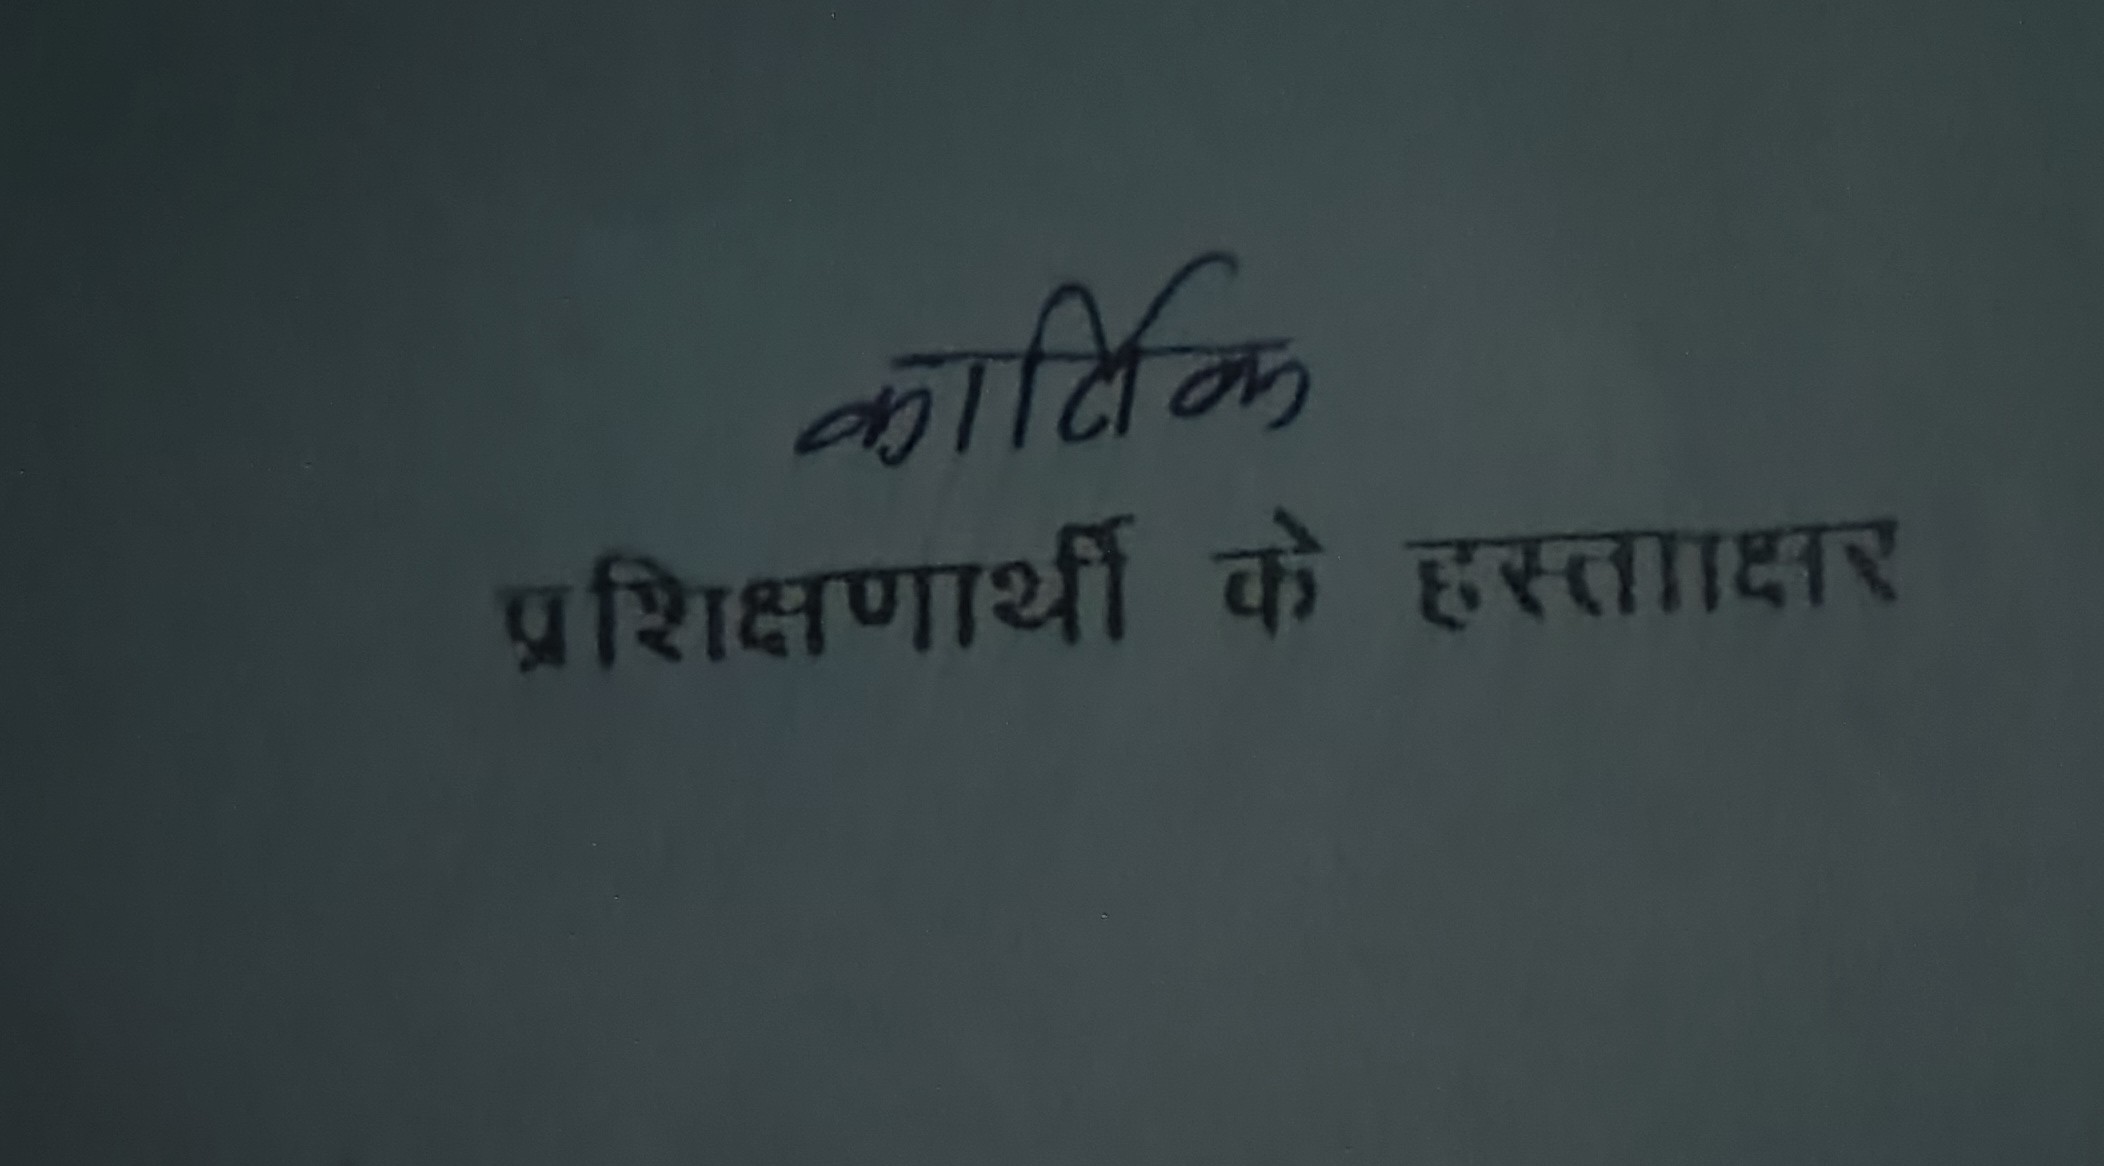 कार्तिक
प्रशिक्षणार्थी के हस्तााक्षर